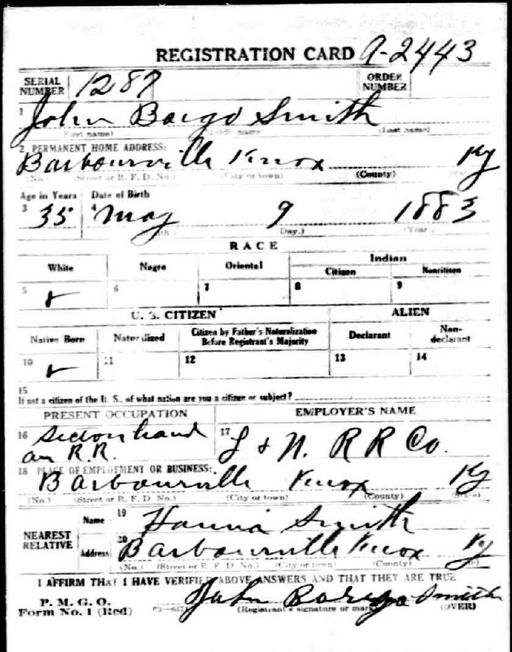 REGISTRATION CARD A-2443
SERIAL NUMBER 1287 ORDER NUMBER
1 John Bargo Smith
(First name) (Last name)
2 PERMANENT HOME ADDRESS:
Barbourville Knox Ky
(No.) (Street or R. F. D. No.) (City or town) (County)
Age in Years Date of Birth
3 35 4 May 9 1883
(Day.) (Year.)
RACE
White Negro Oriental Indian
Citizen Noncitizen
5 ✓ 6 7 8 9
U. S. CITIZEN ALIEN
Native Born Naturalized Citizen by Father's Naturalization Before Registrant's Majority Declarant Non-declarant
10 ✓ 11 12 13 14
15
If not a citizen of the U. S., of what nation are you a citizen or subject?
PRESENT OCCUPATION EMPLOYER'S NAME
16 Section hand 17 L & N. R R Co.
on R.R.
18 PLACE OF EMPLOYMENT OR BUSINESS:
Barbourville Knox Ky
(No.) (Street or R. F. D. No.) (City or town) (County) (State)
NEAREST RELATIVE Name 19 Hannia Smith
Address 20 Barbourville Knox Ky
(No.) (Street or R. F. D. No.) (City or town) (County) (State)
I AFFIRM THAT I HAVE VERIFIED ABOVE ANSWERS AND THAT THEY ARE TRUE
P. M. G. O.
Form No. 1 (Red) John Bargo Smith
(Registrant's signature or mark) (OVER)